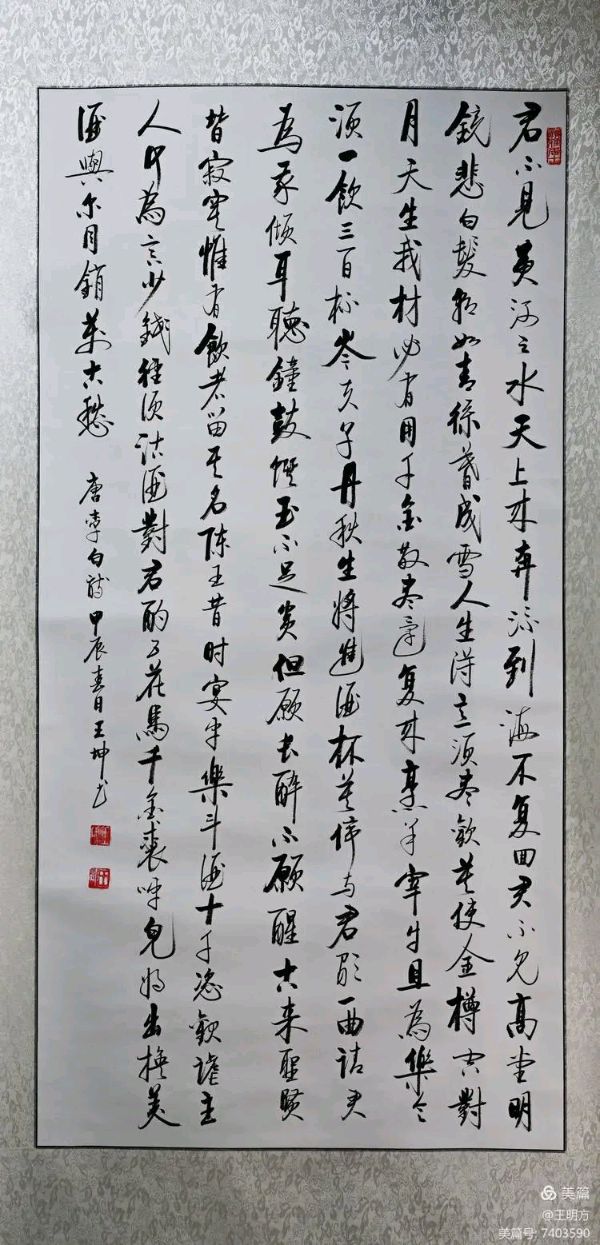 君不見黃河之水天上來奔流到海不复回君不見高堂明
鏡悲白髮朝如青絲暮成雪人生得意須盡歡莫使金樽空對
月天生我材必有用千金散盡還复來烹羊宰牛且為樂会
須一飲三百杯岑夫子丹秋生將進酒杯莫停与君歌一曲請君
為我傾耳聽鐘鼓饌玉不足貴但願長醉不願醒古來聖賢
皆寂寞惟有飲者留其名陳王昔时宴平樂斗酒十千恣歡謔主
人何為言少錢徑須沽酒對君酌五花馬千金裘呼兒將出換美
酒與尔同銷萬古愁 唐李白詩甲辰春日王坤书
美篇
@王明方
美篇号: 7403590